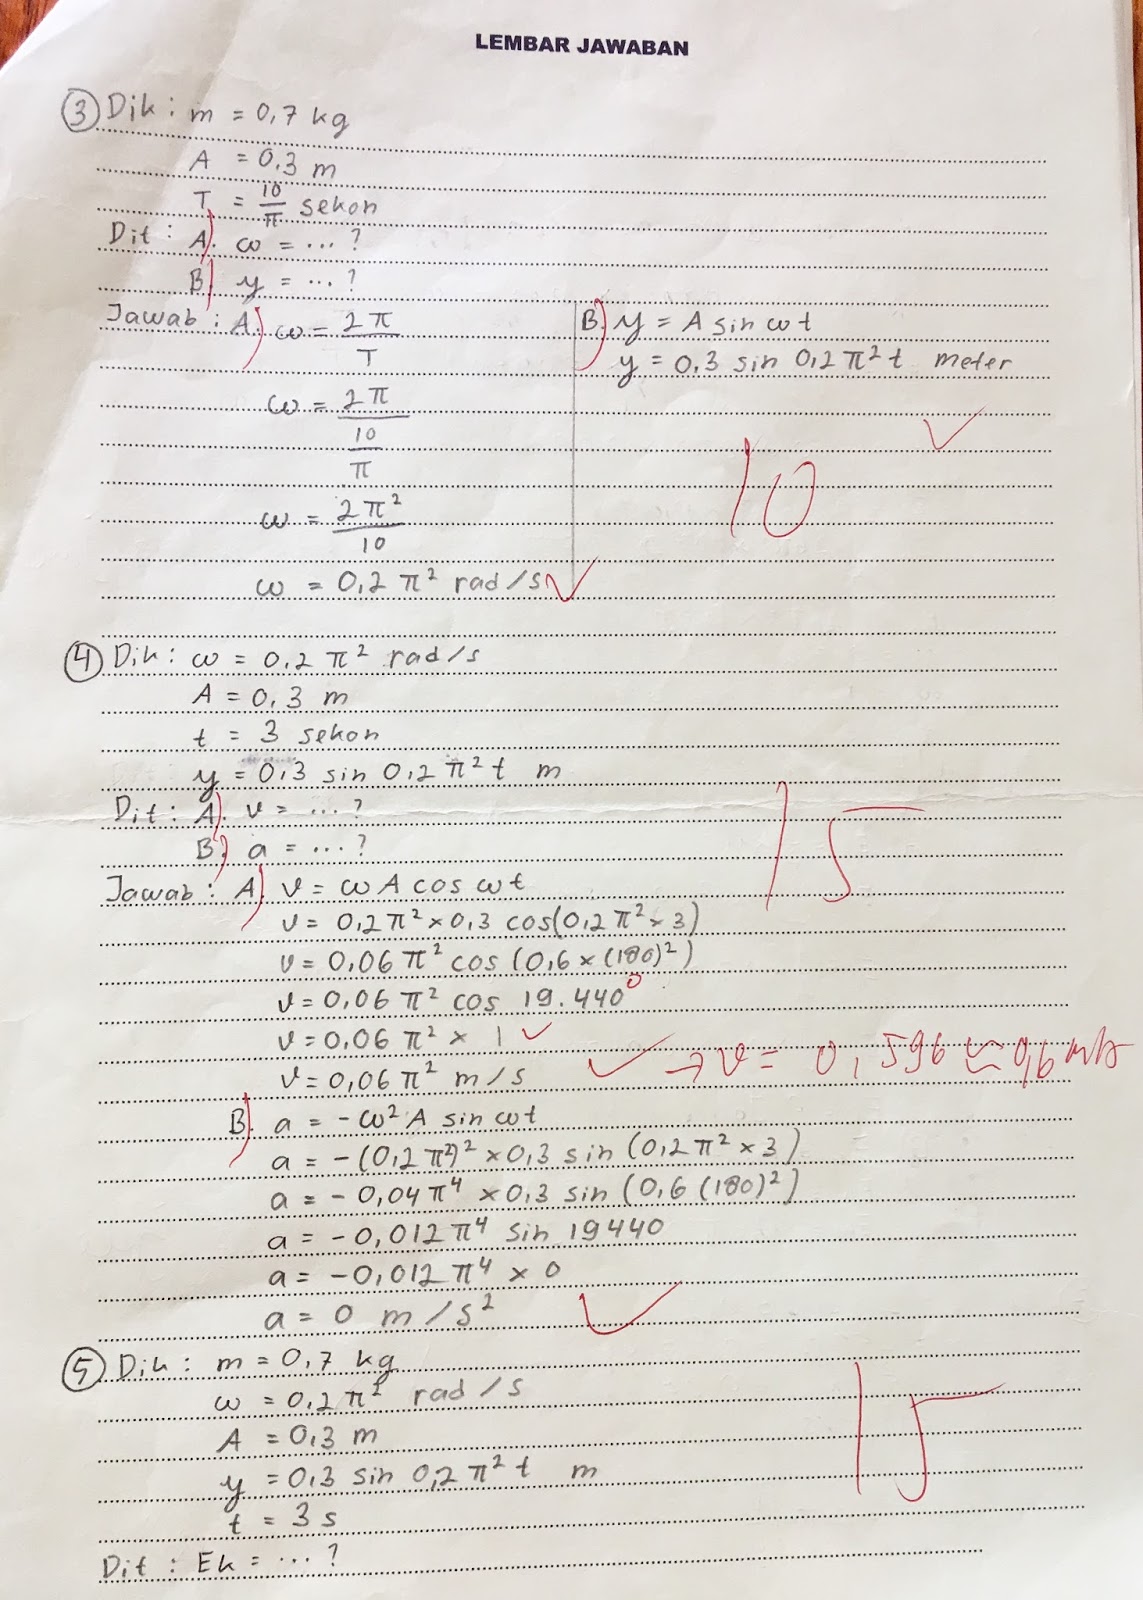 LEMBAR JAWABAN
③ Dik : m = 0,7 kg
A = 0,3 m
T = 10/π sekon
Dit : A). ω = ... ?
B) y = ... ?
Jawab : A.) ω = 2π/T
ω = 2π/(10/π)
ω = 2π²/10
ω = 0,2 π² rad/s ✓
B.) y = A sin ωt
y = 0,3 sin 0,2 π² t meter
✓
10
④ Dik : ω = 0,2 π² rad/s
A = 0,3 m
t = 3 sekon
y = 0,3 sin 0,2 π² t m
Dit : A). v = ... ?
B.) a = ... ?
15
Jawab : A.) v = ω A cos ωt
v = 0,2 π² × 0,3 cos (0,2 π² × 3)
v = 0,06 π² cos (0,6 × (180)²)
v = 0,06 π² cos 19.440°
v = 0,06 π² × 1 ✓
v = 0,06 π² m/s ✓ → v = 0,596 ≈ 0,6 m/s
B.) a = -ω² A sin ωt
a = -(0,2 π²)² × 0,3 sin (0,2 π² × 3)
a = -0,04 π⁴ × 0,3 sin (0,6 (180)²)
a = -0,012 π⁴ sin 19440
a = -0,012 π⁴ × 0
a = 0 m/s² ✓
⑤ Dik : m = 0,7 kg
ω = 0,2 π² rad/s
A = 0,3 m
y = 0,3 sin 0,2 π² t m
t = 3 s
15
Dit : Ek = ... ?